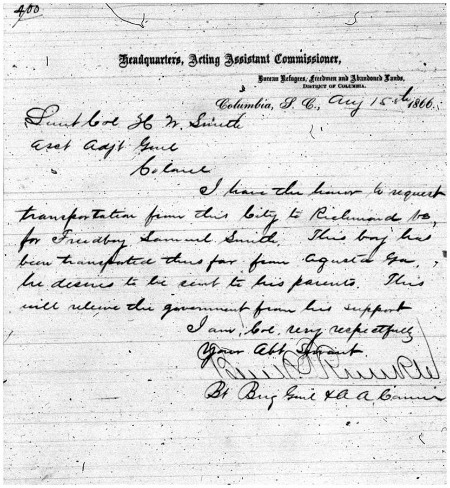 400
Headquarters, Acting Assistant Commissioner,
Bureau Refugees, Freedmen and Abandoned Lands,
DISTRICT OF COLUMBIA.
Columbia, S. C., Aug 15th 1866.
Lieut Col H. W. Smith
Asst Adjt Genl
Colonel
I have the honor to request
transportation from this City to Richmond Va,
for Freedboy Samuel Smith. This boy has
been transported thus far from Agusta Ga,
he desires to be sent to his parents. This
will relieve the government from his support
I am, Col, very respectfully
Your Obt Servant
Bt Brig Genl & A. A. Commr